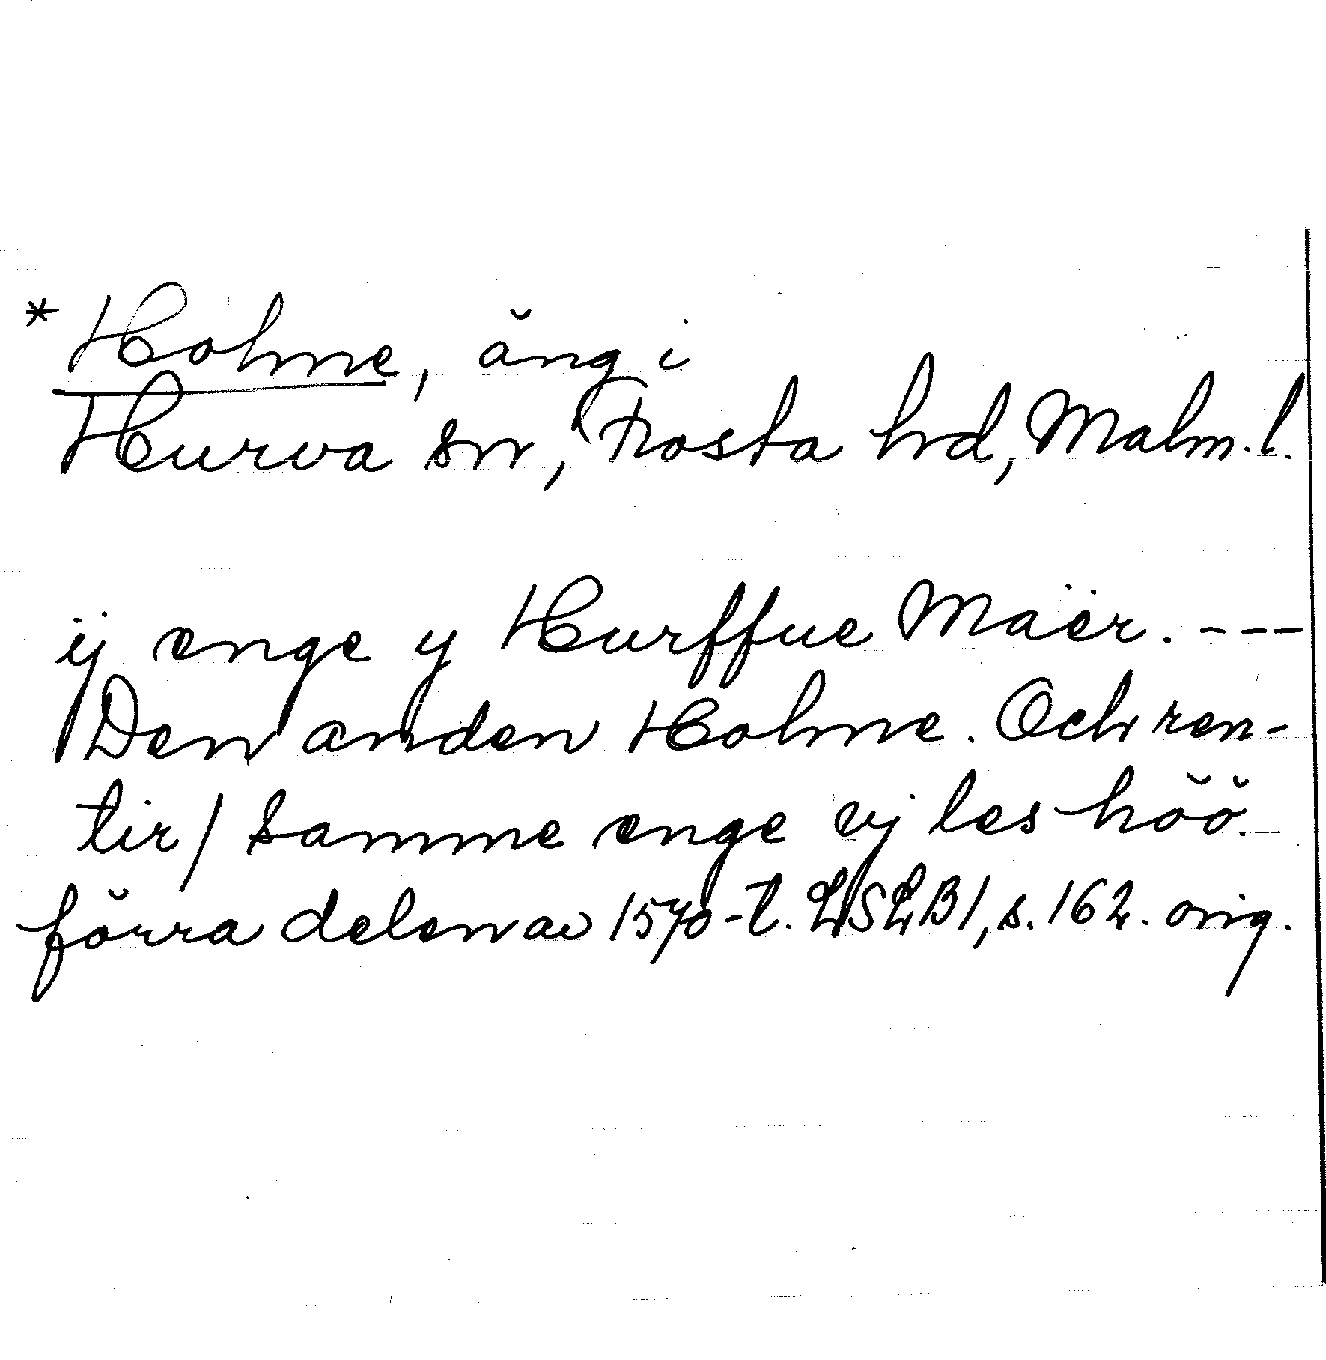 *Holme, äng i
Hurva sn, Frosta hd, Malm. l.
ij enge y Hurffue Maër. ---
Den anden Holme. Och ren-
tir/ samme enge vj les höö.
förra delen av 1570-t. LSLB1, s. 162. orig.